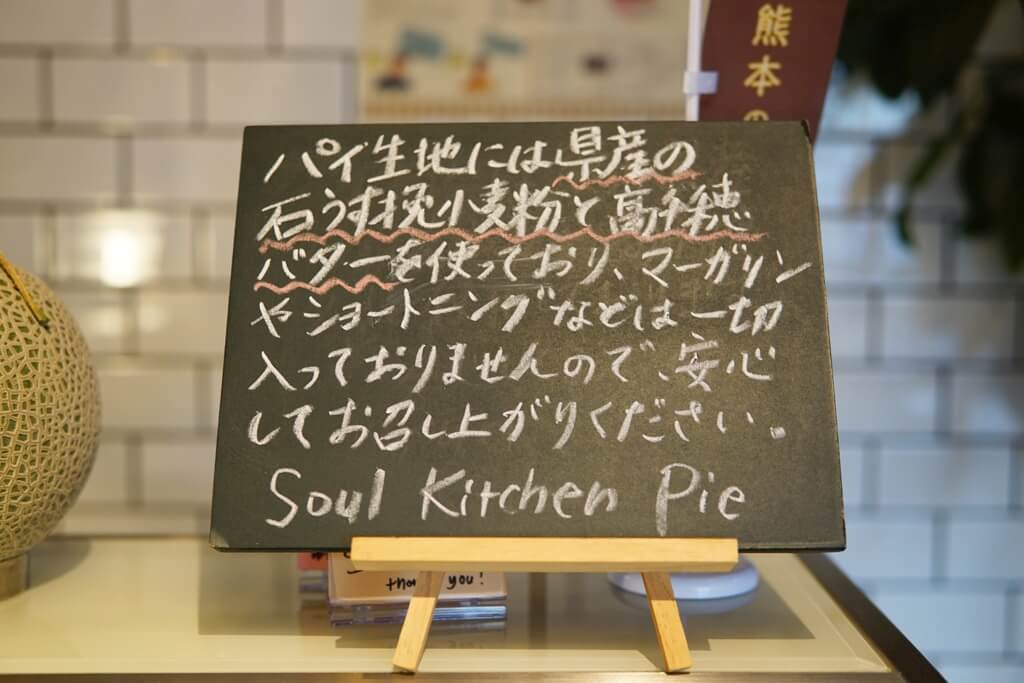 熊本の
パイ生地には県産の
石うす挽小麦粉と高千穂
バターを使っており、マーガリン
やショートニングなどは一切
入っておりませんので、安心
してお召し上がりください。
Soul Kitchen Pie
thank you!